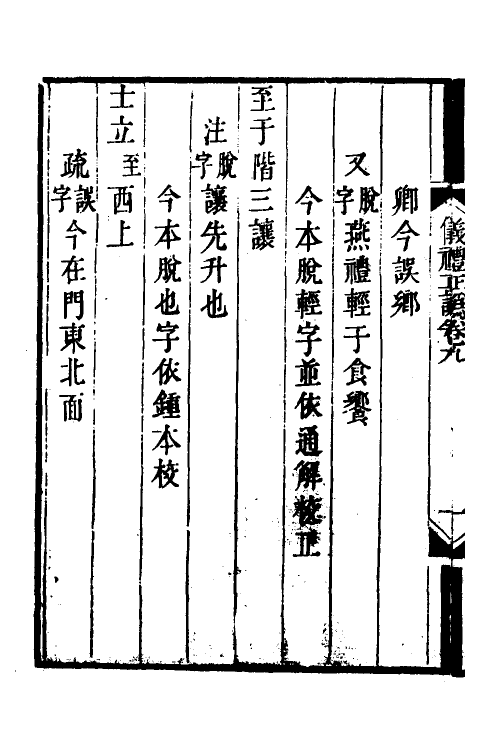 儀禮正譌卷九
卿今誤鄉
又脫字燕禮輕于食饗
今本脫輕字並依通解校正
至于階三讓
注脫字讓先升也
今本脫也字依鍾本校
士立至西上
疏誤字今在門東北面